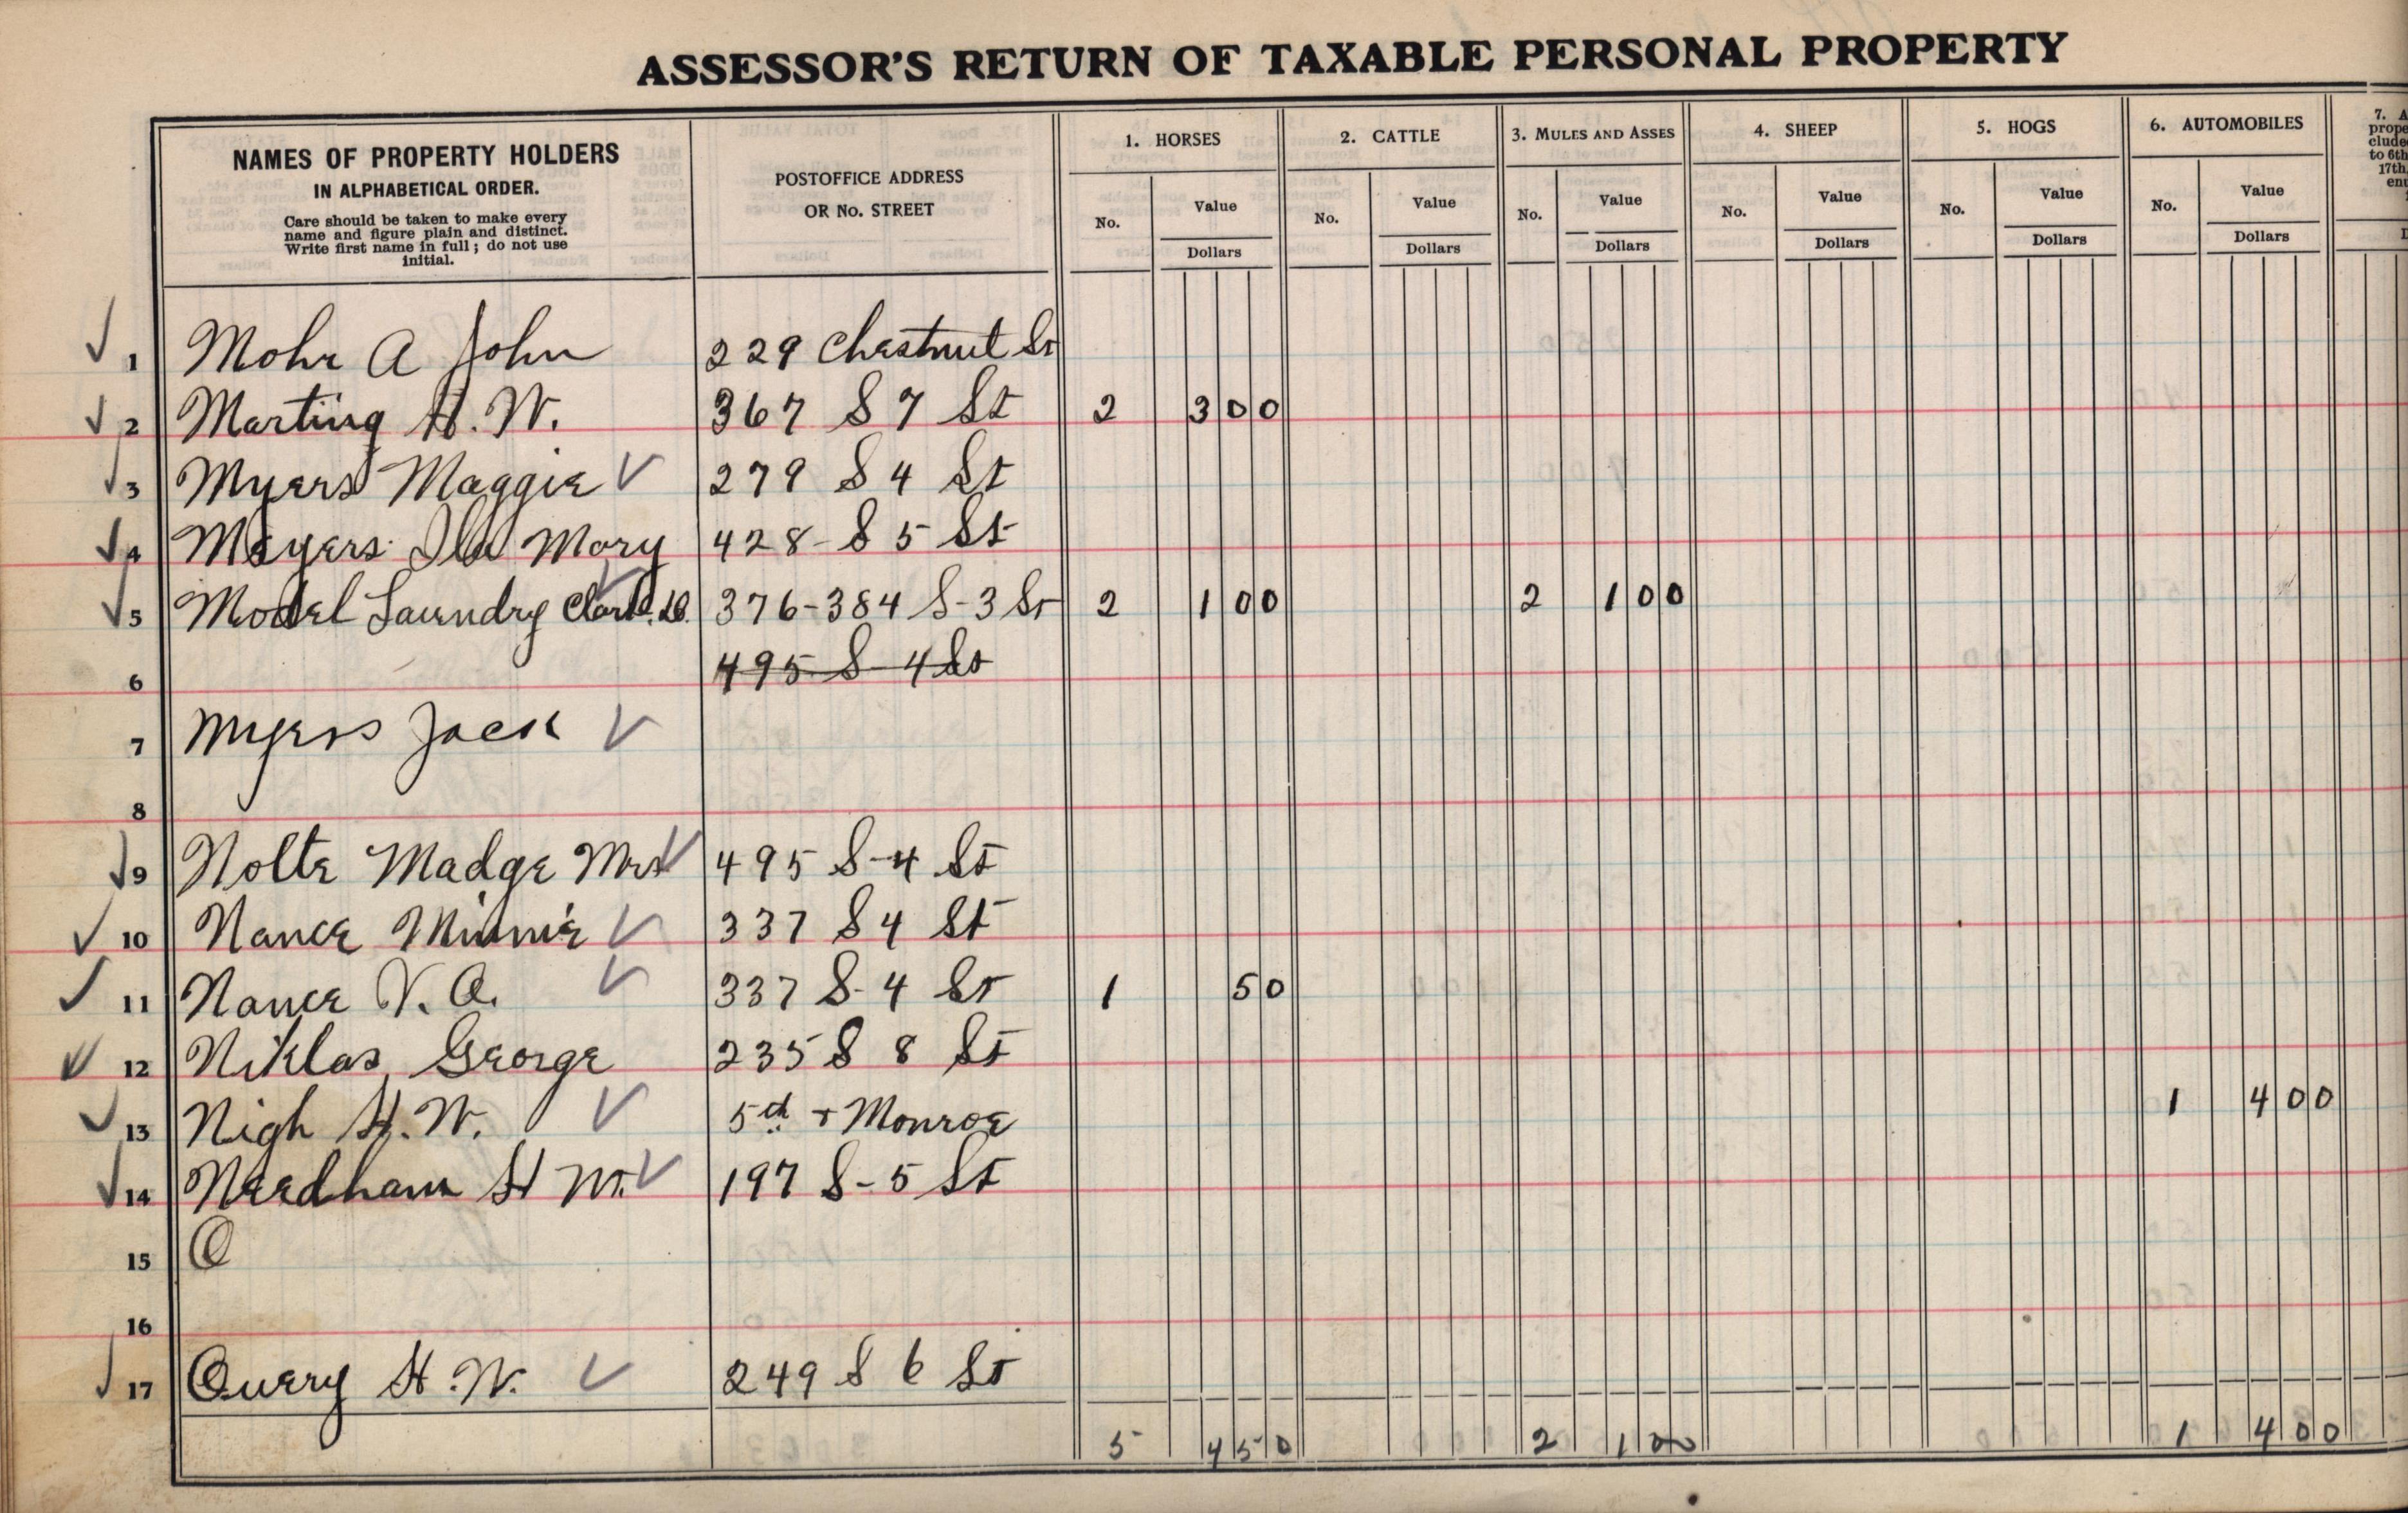 ASSESSOR'S RETURN OF TAXABLE PERSONAL PROPERTY
NAMES OF PROPERTY HOLDERS
IN ALPHABETICAL ORDER.
Care should be taken to make every
name and figure plain and distinct.
Write first name in full; do not use
initial.
POSTOFFICE ADDRESS
OR No. STREET
1. HORSES
No. Value
Dollars
2. CATTLE
No. Value
Dollars
3. MULES AND ASSES
No. Value
Dollars
4. SHEEP
No. Value
Dollars
5. HOGS
No. Value
Dollars
6. AUTOMOBILES
No. Value
Dollars
7. A
prope
clude
to 6th
17th,
enu
D
1 Mohr A John 229 Chestnut St
2 Marting H. W. 367 S 7 St 2 300
3 Myers Maggie 279 S 4 St
4 Meyers Mary 428 - S 5 St
5 Model Laundry 376-384 S-3 St 2 100 2 100
6 495 S-4 St
7 Myers Jack
8
9 Nolte Madge Mrs 495 S-4 St
10 Nance Minnie 337 S 4 St
11 Nance V. A. 337 S-4 St 1 50
12 Niklas, George 235 S 8 St
13 Nigh H. W. 5th + Monroe 1 400
14 Needham H W. 197 S-5 St
15 O
16
17 Query H. W. 249 S 6 St
5 450 2 100 1 400